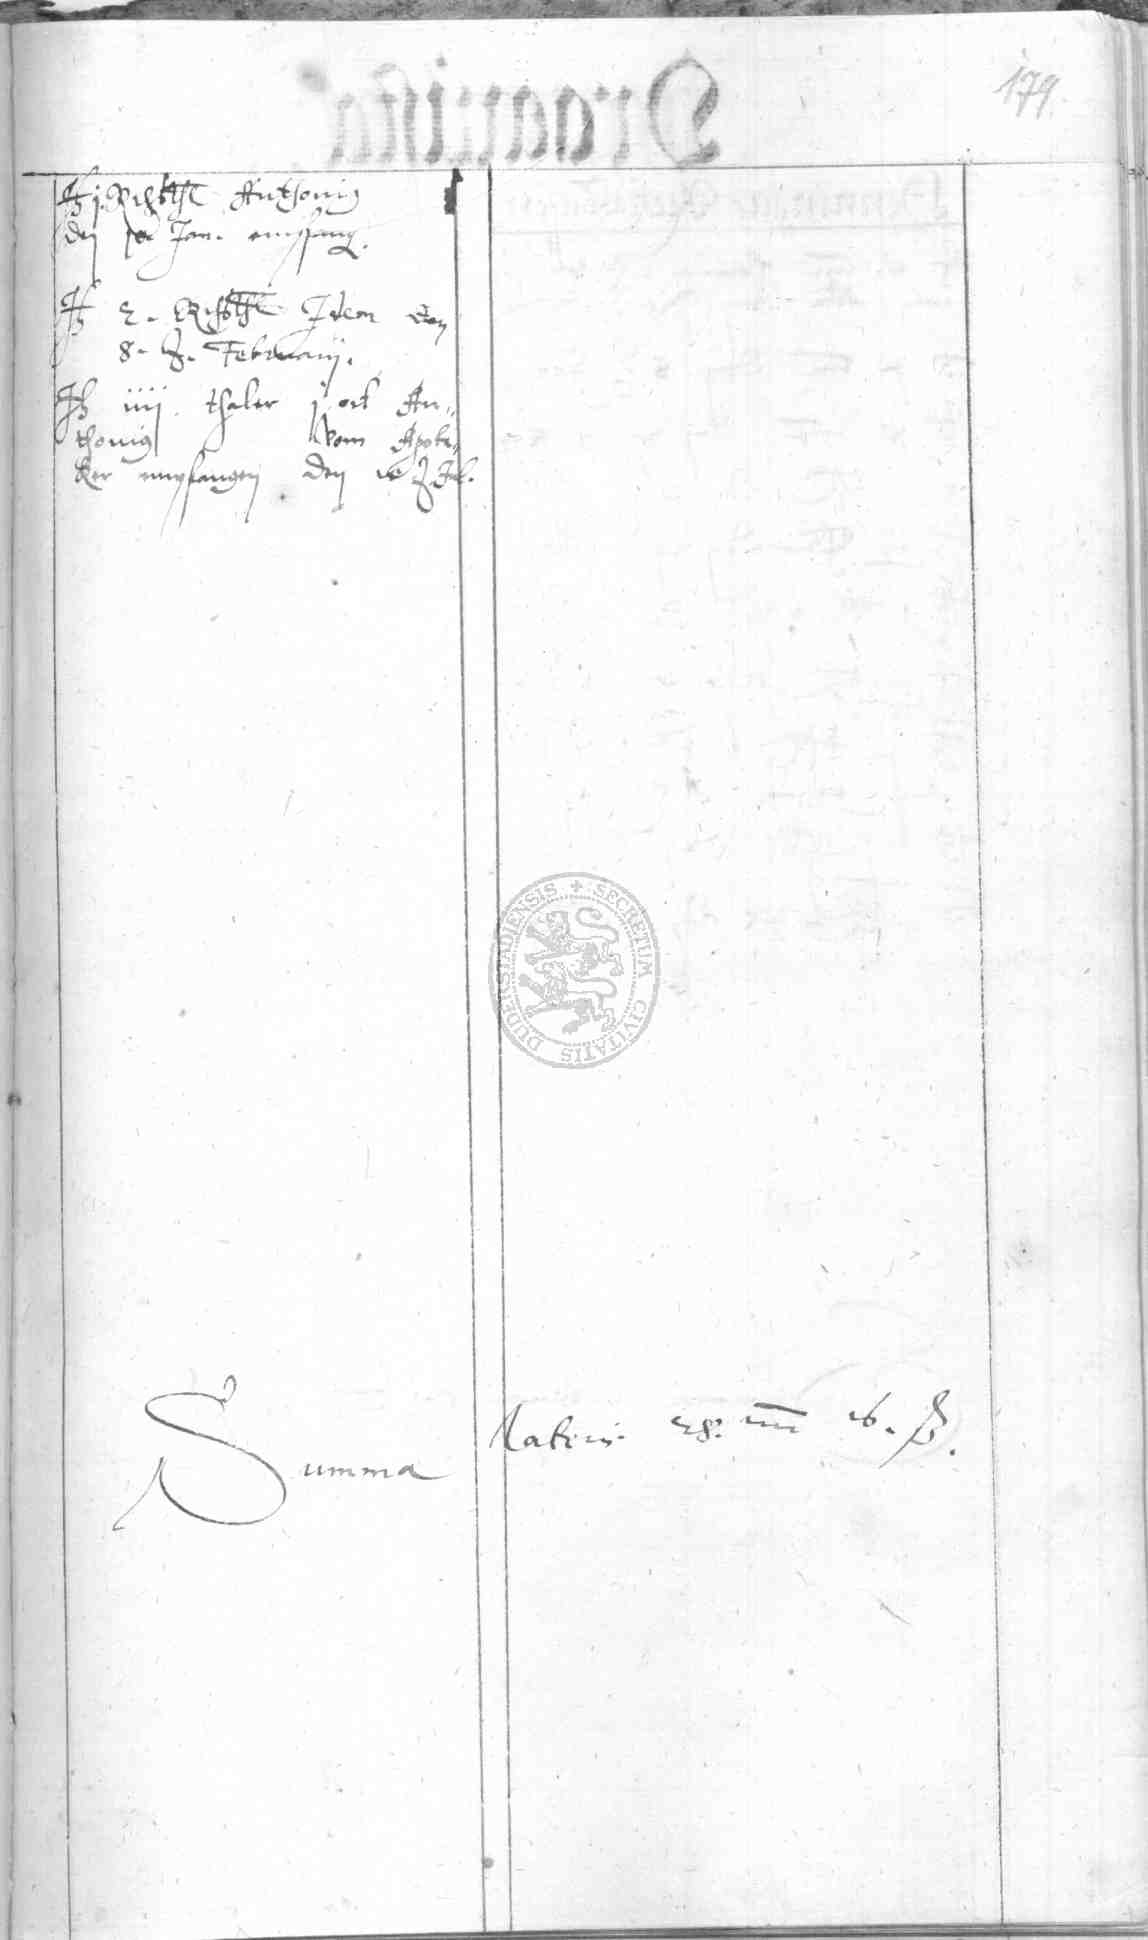 179.
It j. Richsthl Anthonig
den Jan. empfang.
It 2. Richsthl Idem den
8. Februarij.
It iiij thaler j ort An-
thonig vom Apote-
ker empfangen den
Summa lateris
SECRETUM CIVITATIS DUDERSTADIENSIS